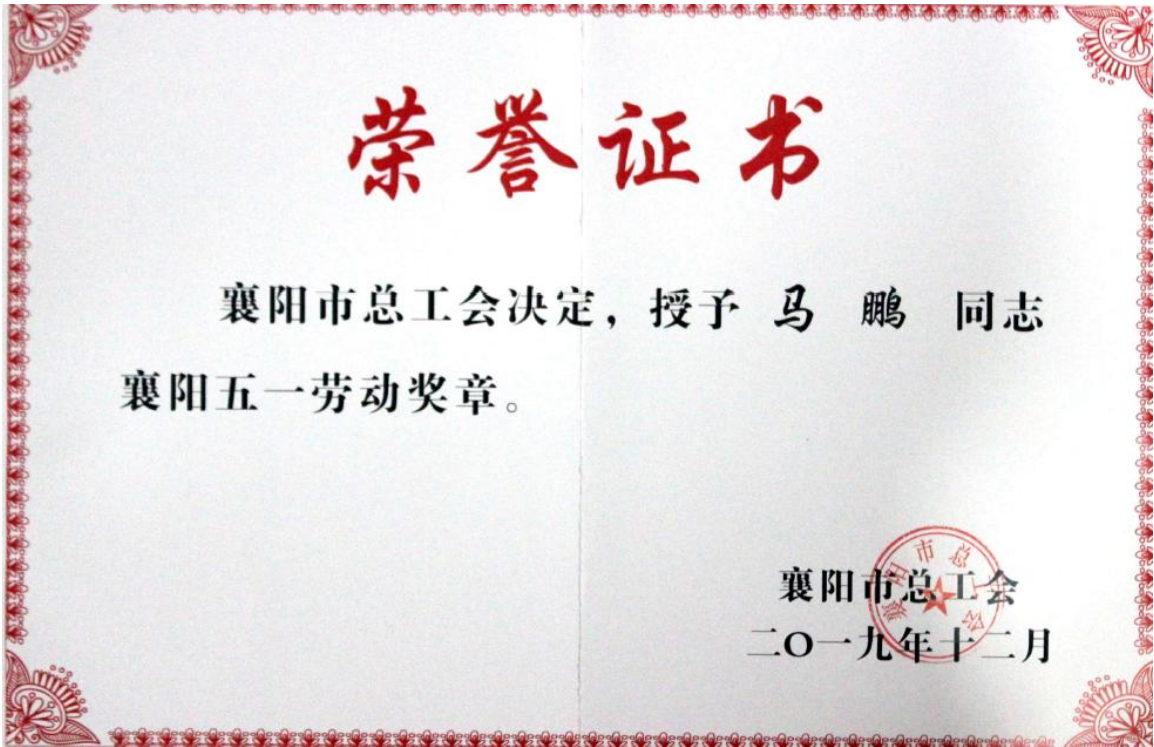 荣誉证书
襄阳市总工会决定，授予 马 鹏 同志
襄阳五一劳动奖章。
襄阳市总工会
二〇一九年十二月
襄阳市总工会